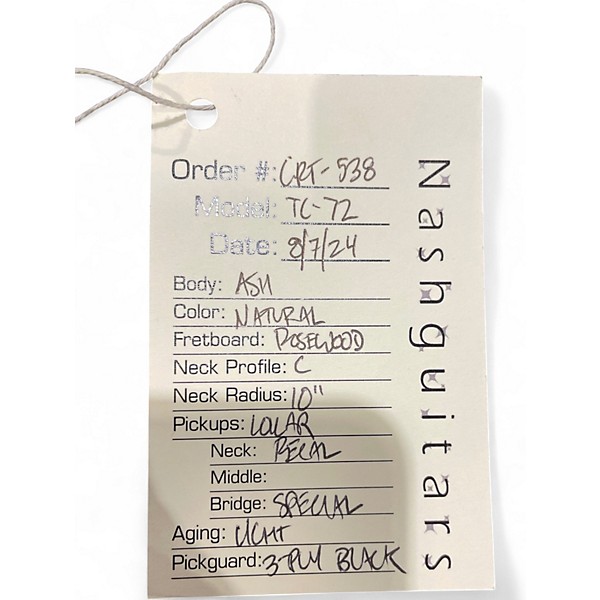 Order #: CRT-538
Model: TC-72
Date: 8/7/24
Body: ASH
Color: NATURAL
Fretboard: ROSEWOOD
Neck Profile: C
Neck Radius: 10"
Pickups: LOLLAR
Neck: REGAL
Middle:
Bridge: SPECIAL
Aging: LIGHT
Pickguard: 3-PLY BLACK
Nashguitars